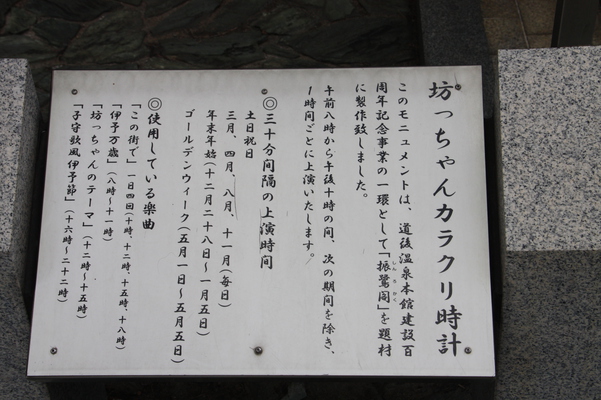 坊っちゃんカラクリ時計
このモニュメントは、道後温泉本館建設百
周年記念事業の一環として「振鷺閣」を題材
しんろかく
に製作致しました。
午前八時から午後十時の間、次の期間を除き、
1時間ごとに上演いたします。
◎三十分間隔の上演時間
土日祝日
三月、四月、八月、十一月(毎日)
年末年始(十二月二十八日〜一月五日)
ゴールデンウィーク(五月一日〜五月五日)
◎使用している楽曲
「この街で」一日四回(十時、十二時、十五時、十八時)
「伊予万歳」(八時〜十一時)
「坊っちゃんのテーマ」(十二時〜十五時)
「子守歌風伊予節」(十六時〜二十二時)